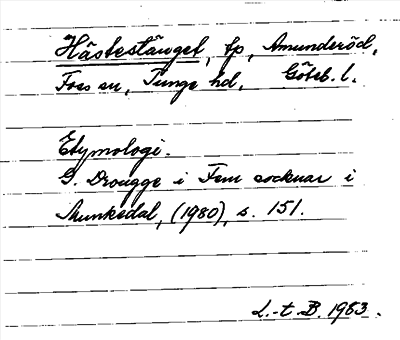 Hästestänget, tp, Amunderöd,
Foss sn, Tunge hd, Göteb. l.
Etymologi.
G. Drougge i Fem socknar i
Munkedal, (1980), s. 151.
L.-t B. 1983.